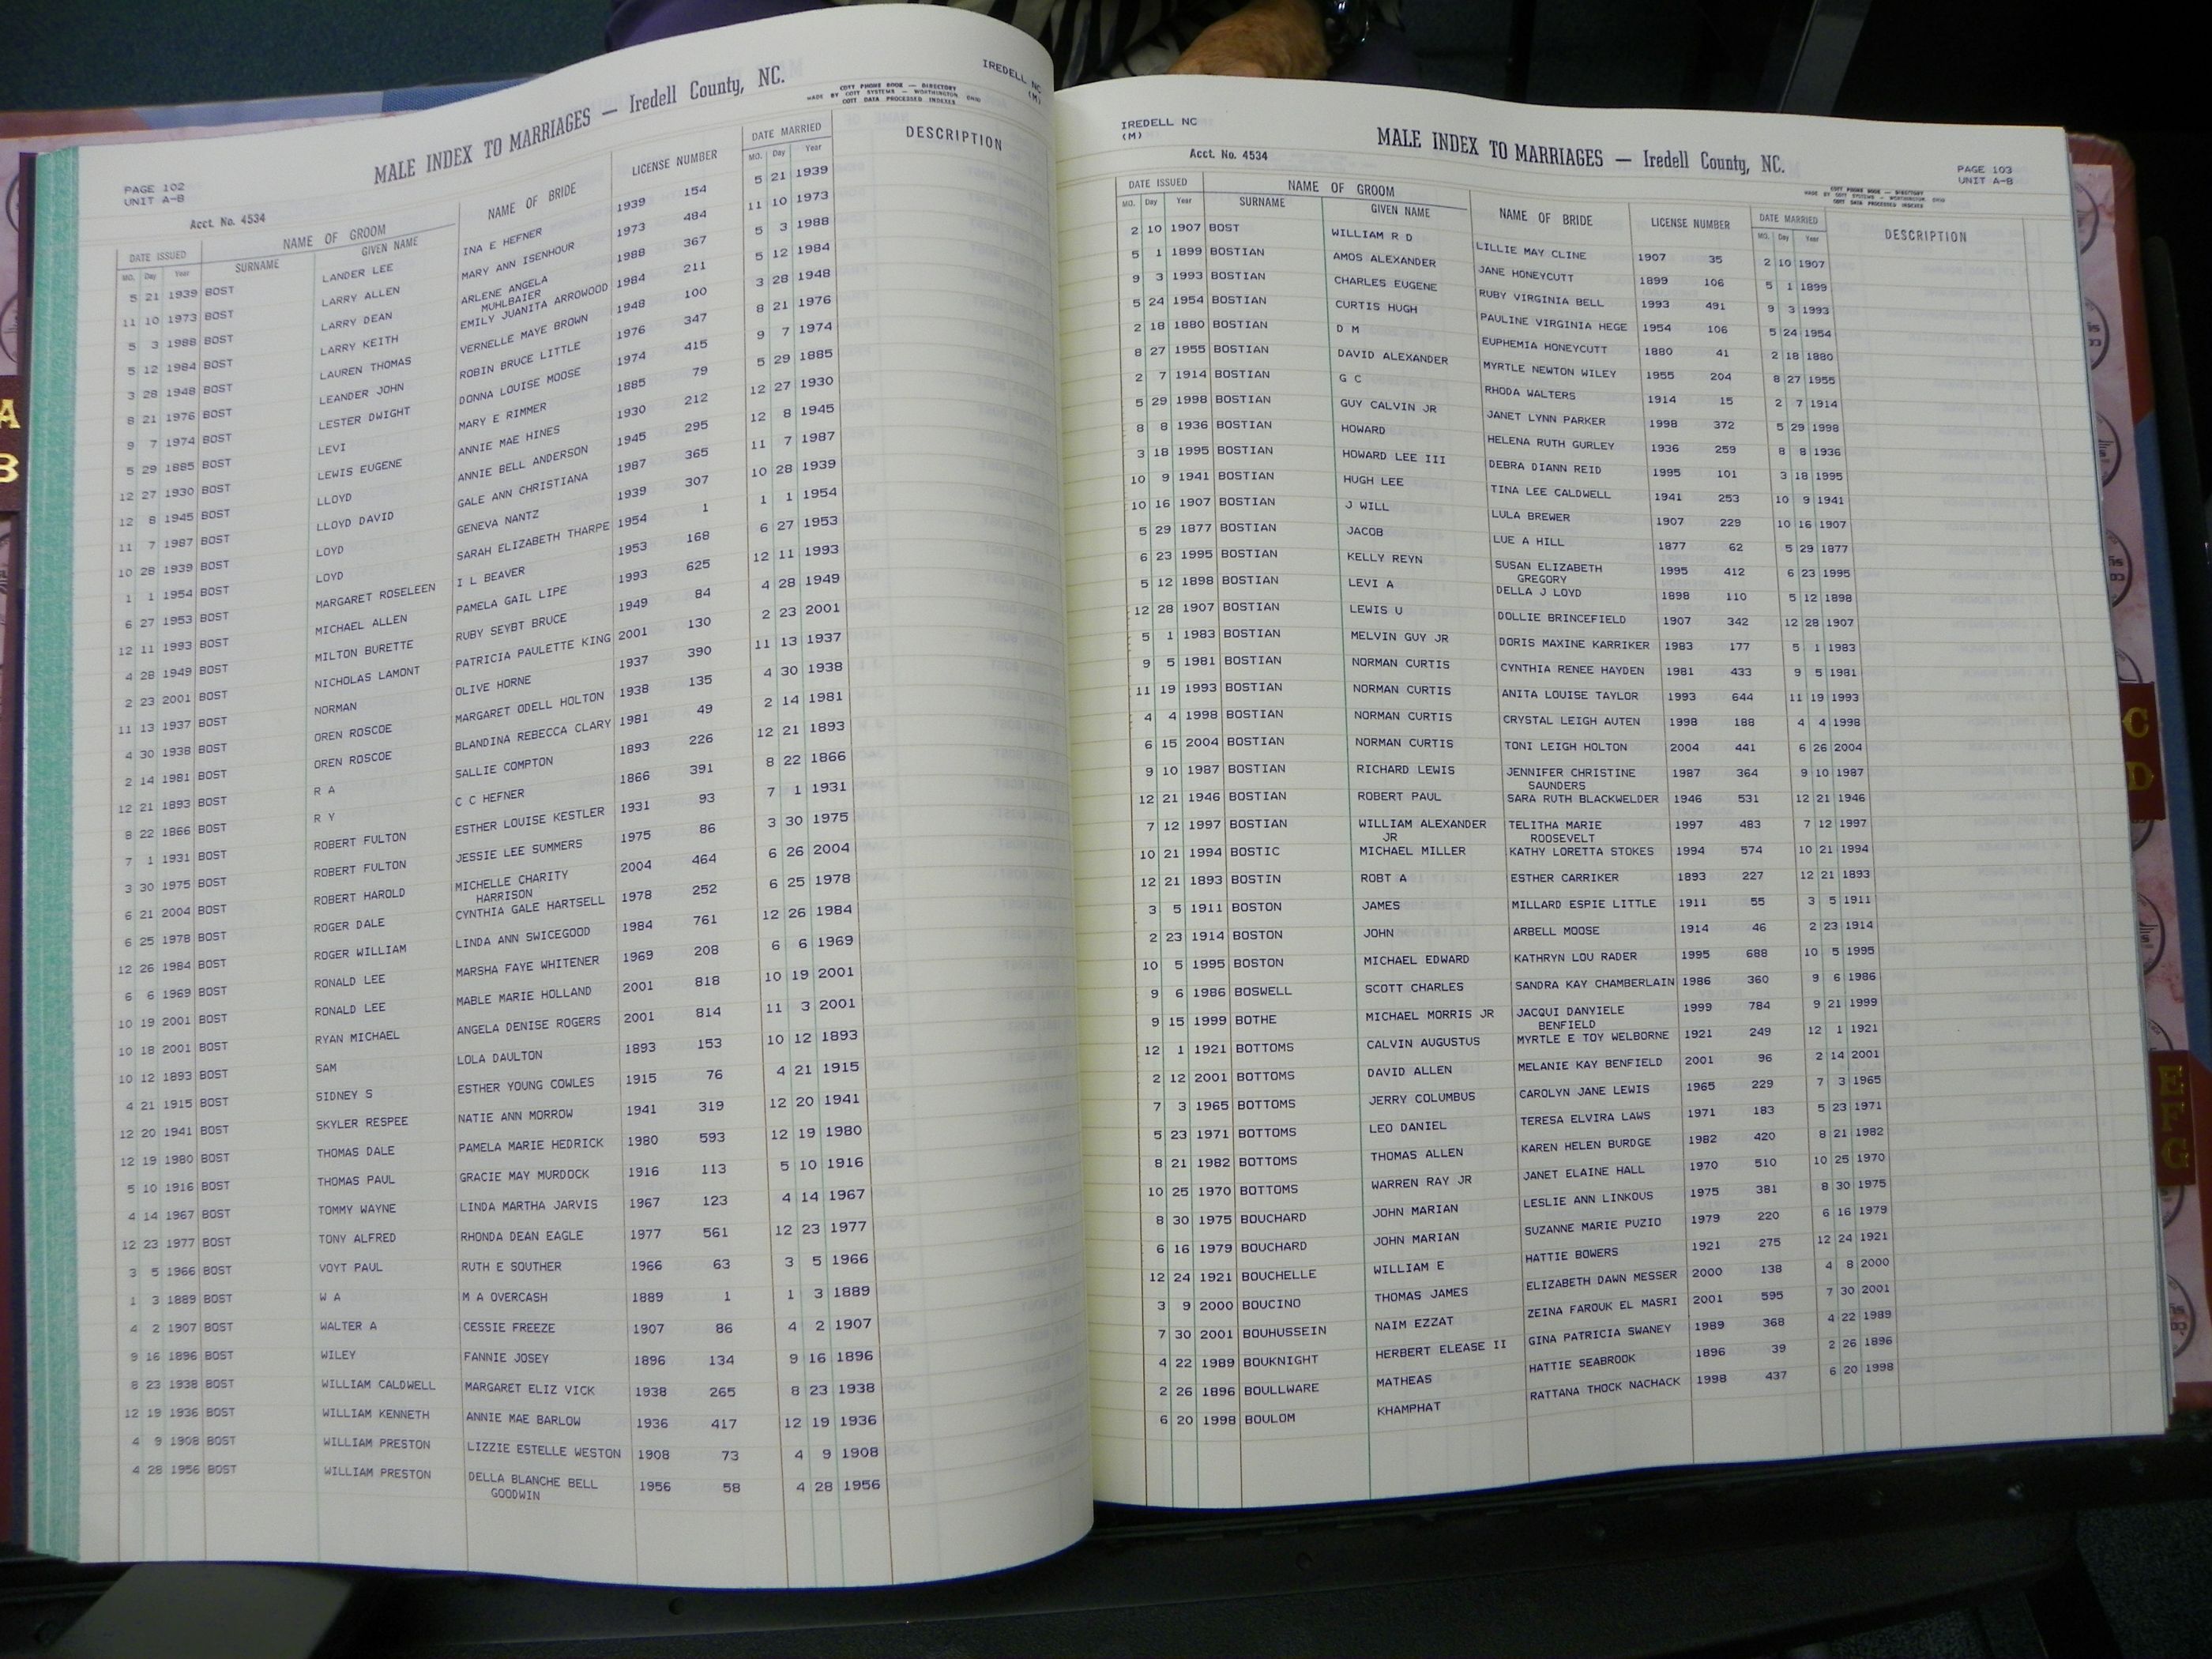 IREDELL NC
(M)
MALE INDEX TO MARRIAGES — Iredell County, NC.
COTT PHONE BOOK — DIRECTORY
MADE BY COTT SYSTEMS — WORTHINGTON OHIO
COTT DATA PROCESSED INDEXES
PAGE 102
UNIT A-B
Acct. No. 4534
DATE ISSUED NAME OF GROOM NAME OF BRIDE LICENSE NUMBER DATE MARRIED DESCRIPTION
MO. Day Year SURNAME GIVEN NAME MO. Day Year
5 21 1939 BOST LANDER LEE INA E HEFNER 1939 154 5 21 1939
11 10 1973 BOST LARRY ALLEN MARY ANN ISENHOUR 1973 484 11 10 1973
5 3 1988 BOST LARRY DEAN ARLENE ANGELA 1988 367 5 3 1988
MUHLBAIER
5 12 1984 BOST LARRY KEITH EMILY JUANITA ARROWOOD 1984 211 5 12 1984
3 28 1948 BOST LAUREN THOMAS VERNELLE MAYE BROWN 1948 100 3 28 1948
8 21 1976 BOST LEANDER JOHN ROBIN BRUCE LITTLE 1976 347 8 21 1976
9 7 1974 BOST LESTER DWIGHT DONNA LOUISE MOOSE 1974 415 9 7 1974
5 29 1885 BOST LEVI MARY E RIMMER 1885 79 5 29 1885
12 27 1930 BOST LEWIS EUGENE ANNIE MAE HINES 1930 212 12 27 1930
12 8 1945 BOST LLOYD ANNIE BELL ANDERSON 1945 295 12 8 1945
11 7 1987 BOST LLOYD DAVID GALE ANN CHRISTIANA 1987 365 11 7 1987
10 28 1939 BOST LOYD GENEVA NANTZ 1939 307 10 28 1939
1 1 1954 BOST LOYD SARAH ELIZABETH THARPE 1954 1 1 1 1954
6 27 1953 BOST MARGARET ROSELEEN I L BEAVER 1953 168 6 27 1953
12 11 1993 BOST MICHAEL ALLEN PAMELA GAIL LIPE 1993 625 12 11 1993
4 28 1949 BOST MILTON BURETTE RUBY SEYBT BRUCE 1949 84 4 28 1949
2 23 2001 BOST NICHOLAS LAMONT PATRICIA PAULETTE KING 2001 130 2 23 2001
11 13 1937 BOST NORMAN OLIVE HORNE 1937 390 11 13 1937
4 30 1938 BOST OREN ROSCOE MARGARET ODELL HOLTON 1938 135 4 30 1938
2 14 1981 BOST OREN ROSCOE BLANDINA REBECCA CLARY 1981 49 2 14 1981
12 21 1893 BOST R A SALLIE COMPTON 1893 226 12 21 1893
8 22 1866 BOST R Y C C HEFNER 1866 391 8 22 1866
7 1 1931 BOST ROBERT FULTON ESTHER LOUISE KESTLER 1931 93 7 1 1931
3 30 1975 BOST ROBERT FULTON JESSIE LEE SUMMERS 1975 86 3 30 1975
6 21 2004 BOST ROBERT HAROLD MICHELLE CHARITY 2004 464 6 26 2004
HARRISON
6 25 1978 BOST ROGER DALE CYNTHIA GALE HARTSELL 1978 252 6 25 1978
12 26 1984 BOST ROGER WILLIAM LINDA ANN SWICEGOOD 1984 761 12 26 1984
6 6 1969 BOST RONALD LEE MARSHA FAYE WHITENER 1969 208 6 6 1969
10 19 2001 BOST RONALD LEE MABLE MARIE HOLLAND 2001 818 10 19 2001
10 18 2001 BOST RYAN MICHAEL ANGELA DENISE ROGERS 2001 814 11 3 2001
10 12 1893 BOST SAM LOLA DAULTON 1893 153 10 12 1893
4 21 1915 BOST SIDNEY S ESTHER YOUNG COWLES 1915 76 4 21 1915
12 20 1941 BOST SKYLER RESPEE NATIE ANN MORROW 1941 319 12 20 1941
12 19 1980 BOST THOMAS DALE PAMELA MARIE HEDRICK 1980 593 12 19 1980
5 10 1916 BOST THOMAS PAUL GRACIE MAY MURDOCK 1916 113 5 10 1916
4 14 1967 BOST TOMMY WAYNE LINDA MARTHA JARVIS 1967 123 4 14 1967
12 23 1977 BOST TONY ALFRED RHONDA DEAN EAGLE 1977 561 12 23 1977
3 5 1966 BOST VOYT PAUL RUTH E SOUTHER 1966 63 3 5 1966
1 3 1889 BOST W A M A OVERCASH 1889 1 1 3 1889
4 2 1907 BOST WALTER A CESSIE FREEZE 1907 86 4 2 1907
9 16 1896 BOST WILEY FANNIE JOSEY 1896 134 9 16 1896
8 23 1938 BOST WILLIAM CALDWELL MARGARET ELIZ VICK 1938 265 8 23 1938
12 19 1936 BOST WILLIAM KENNETH ANNIE MAE BARLOW 1936 417 12 19 1936
4 9 1908 BOST WILLIAM PRESTON LIZZIE ESTELLE WESTON 1908 73 4 9 1908
4 28 1956 BOST WILLIAM PRESTON DELLA BLANCHE BELL 1956 58 4 28 1956
GOODWIN
IREDELL NC
(M)
MALE INDEX TO MARRIAGES — Iredell County, NC.
Acct. No. 4534
PAGE 103
UNIT A-B
COTT PHONE BOOK — DIRECTORY
MADE BY COTT SYSTEMS — WORTHINGTON OHIO
COTT DATA PROCESSED INDEXES
DATE ISSUED NAME OF GROOM NAME OF BRIDE LICENSE NUMBER DATE MARRIED DESCRIPTION
MO. Day Year SURNAME GIVEN NAME MO. Day Year
2 10 1907 BOST WILLIAM R D LILLIE MAY CLINE 1907 35 2 10 1907
5 1 1899 BOSTIAN AMOS ALEXANDER JANE HONEYCUTT 1899 106 5 1 1899
9 3 1993 BOSTIAN CHARLES EUGENE RUBY VIRGINIA BELL 1993 491 9 3 1993
5 24 1954 BOSTIAN CURTIS HUGH PAULINE VIRGINIA HEGE 1954 106 5 24 1954
2 18 1880 BOSTIAN D M EUPHEMIA HONEYCUTT 1880 41 2 18 1880
8 27 1955 BOSTIAN DAVID ALEXANDER MYRTLE NEWTON WILEY 1955 204 8 27 1955
2 7 1914 BOSTIAN G C RHODA WALTERS 1914 15 2 7 1914
5 29 1998 BOSTIAN GUY CALVIN JR JANET LYNN PARKER 1998 372 5 29 1998
8 8 1936 BOSTIAN HOWARD HELENA RUTH GURLEY 1936 259 8 8 1936
3 18 1995 BOSTIAN HOWARD LEE III DEBRA DIANN REID 1995 101 3 18 1995
10 9 1941 BOSTIAN HUGH LEE TINA LEE CALDWELL 1941 253 10 9 1941
10 16 1907 BOSTIAN J WILL LULA BREWER 1907 229 10 16 1907
5 29 1877 BOSTIAN JACOB LUE A HILL 1877 62 5 29 1877
6 23 1995 BOSTIAN KELLY REYN SUSAN ELIZABETH 1995 412 6 23 1995
GREGORY
5 12 1898 BOSTIAN LEVI A DELLA J LOYD 1898 110 5 12 1898
12 28 1907 BOSTIAN LEWIS U DOLLIE BRINCEFIELD 1907 342 12 28 1907
5 1 1983 BOSTIAN MELVIN GUY JR DORIS MAXINE KARRIKER 1983 177 5 1 1983
9 5 1981 BOSTIAN NORMAN CURTIS CYNTHIA RENEE HAYDEN 1981 433 9 5 1981
11 19 1993 BOSTIAN NORMAN CURTIS ANITA LOUISE TAYLOR 1993 644 11 19 1993
4 4 1998 BOSTIAN NORMAN CURTIS CRYSTAL LEIGH AUTEN 1998 188 4 4 1998
6 15 2004 BOSTIAN NORMAN CURTIS TONI LEIGH HOLTON 2004 441 6 26 2004
9 10 1987 BOSTIAN RICHARD LEWIS JENNIFER CHRISTINE 1987 364 9 10 1987
SAUNDERS
12 21 1946 BOSTIAN ROBERT PAUL SARA RUTH BLACKWELDER 1946 531 12 21 1946
7 12 1997 BOSTIAN WILLIAM ALEXANDER TELITHA MARIE 1997 483 7 12 1997
JR ROOSEVELT
10 21 1994 BOSTIC MICHAEL MILLER KATHY LORETTA STOKES 1994 574 10 21 1994
12 21 1893 BOSTIN ROBT A ESTHER CARRIKER 1893 227 12 21 1893
3 5 1911 BOSTON JAMES MILLARD ESPIE LITTLE 1911 55 3 5 1911
2 23 1914 BOSTON JOHN ARBELL MOOSE 1914 46 2 23 1914
10 5 1995 BOSTON MICHAEL EDWARD KATHRYN LOU RADER 1995 688 10 5 1995
9 6 1986 BOSWELL SCOTT CHARLES SANDRA KAY CHAMBERLAIN 1986 360 9 6 1986
9 15 1999 BOTHE MICHAEL MORRIS JR JACQUI DANYIELE 1999 784 9 21 1999
BENFIELD
12 1 1921 BOTTOMS CALVIN AUGUSTUS MYRTLE E TOY WELBORNE 1921 249 12 1 1921
2 12 2001 BOTTOMS DAVID ALLEN MELANIE KAY BENFIELD 2001 96 2 14 2001
7 3 1965 BOTTOMS JERRY COLUMBUS CAROLYN JANE LEWIS 1965 229 7 3 1965
5 23 1971 BOTTOMS LEO DANIEL TERESA ELVIRA LAWS 1971 183 5 23 1971
8 21 1982 BOTTOMS THOMAS ALLEN KAREN HELEN BURDGE 1982 420 8 21 1982
10 25 1970 BOTTOMS WARREN RAY JR JANET ELAINE HALL 1970 510 10 25 1970
8 30 1975 BOUCHARD JOHN MARIAN LESLIE ANN LINKOUS 1975 381 8 30 1975
6 16 1979 BOUCHARD JOHN MARIAN SUZANNE MARIE PUZIO 1979 220 6 16 1979
12 24 1921 BOUCHELLE WILLIAM E HATTIE BOWERS 1921 275 12 24 1921
3 9 2000 BOUCINO THOMAS JAMES ELIZABETH DAWN MESSER 2000 138 4 8 2000
7 30 2001 BOUHUSSEIN NAIM EZZAT ZEINA FAROUK EL MASRI 2001 595 7 30 2001
4 22 1989 BOUKNIGHT HERBERT ELEASE II GINA PATRICIA SWANEY 1989 368 4 22 1989
2 26 1896 BOULLWARE MATHEAS HATTIE SEABROOK 1896 39 2 26 1896
6 20 1998 BOULOM KHAMPHAT RATTANA THOCK NACHACK 1998 437 6 20 1998
A
B
C
D
E
F
G